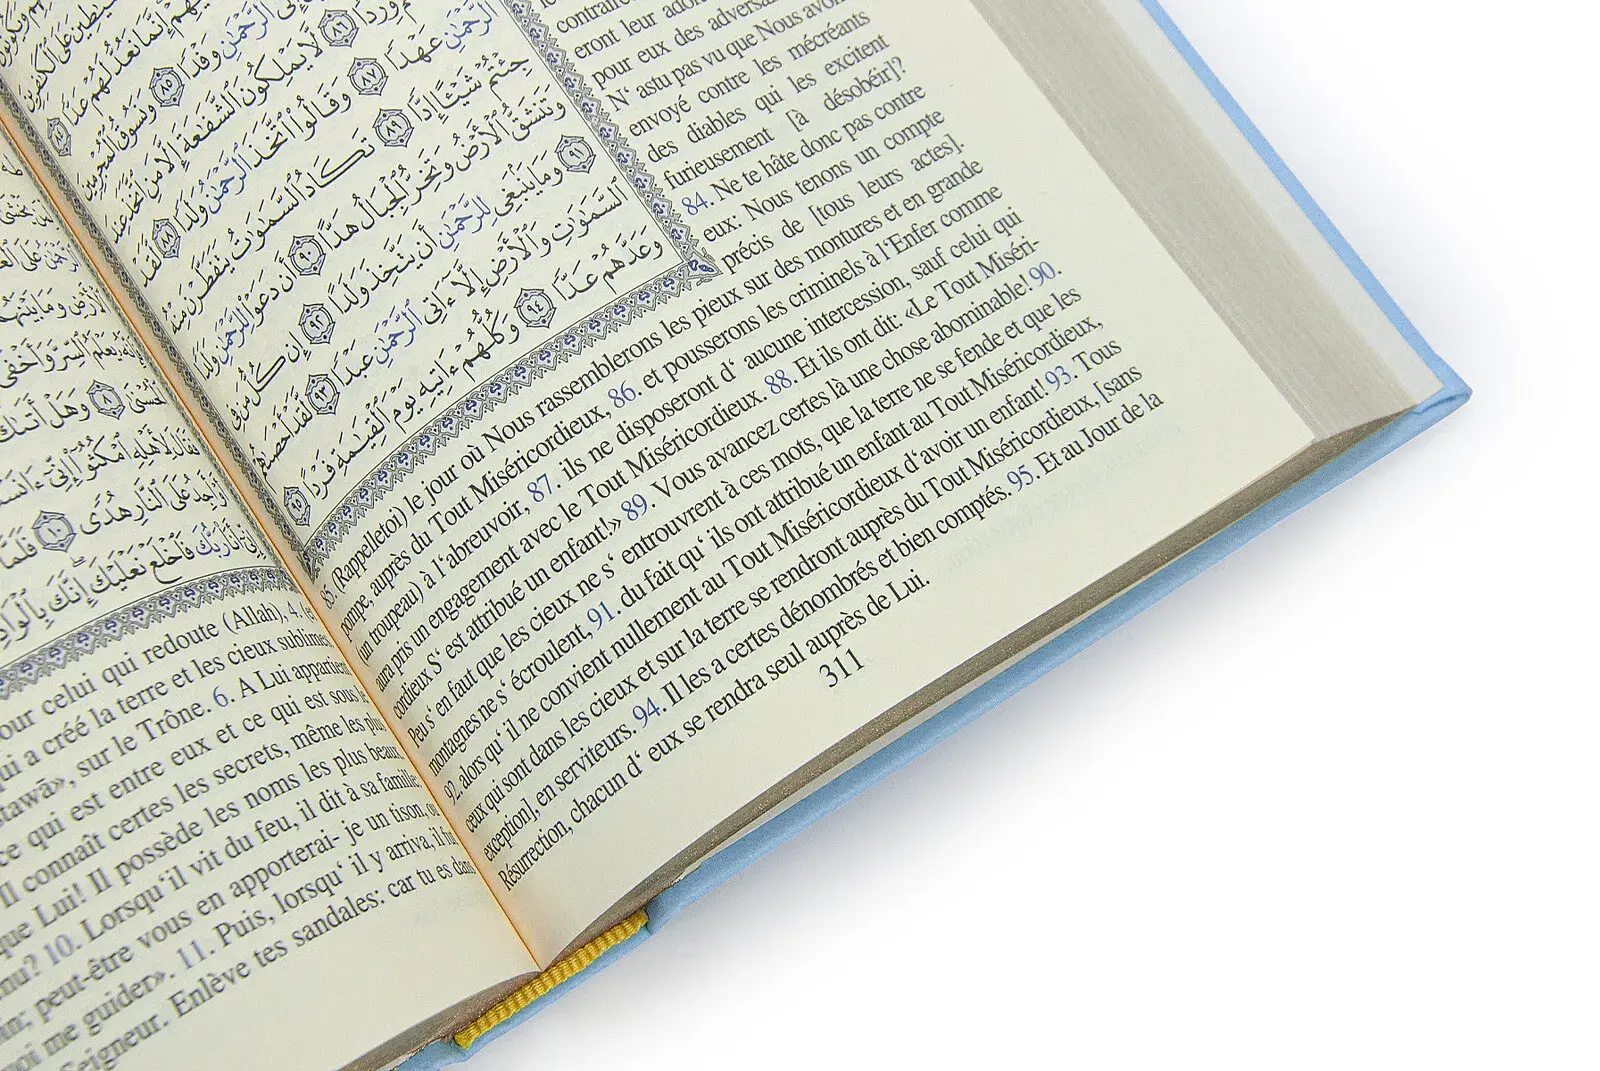 ٱلشَّيَٰطِينَ عَلَى ٱلْكَٰفِرِينَ
إِنَّمَا نَعُدُّ لَهُمْ عَدًّا ٨٤
ٱلرَّحْمَٰنِ وَفْدًا ٨٥ وَنَسُوقُ ٱلْمُجْرِمِينَ
وِرْدًا ٨٦ لَّا يَمْلِكُونَ ٱلشَّفَٰعَةَ إِلَّا مَنِ ٱتَّخَذَ عِندَ
ٱلرَّحْمَٰنِ عَهْدًا ٨٧ وَقَالُوا۟ ٱتَّخَذَ ٱلرَّحْمَٰنُ وَلَدًا ٨٨ لَّقَدْ
جِئْتُمْ شَيْـًٔا إِدًّا ٨٩ تَكَادُ ٱلسَّمَٰوَٰتُ يَتَفَطَّرْنَ مِنْهُ
وَتَنشَقُّ ٱلْأَرْضُ وَتَخِرُّ ٱلْجِبَالُ هَدًّا ٩٠ أَن دَعَوْا۟ لِلرَّحْمَٰنِ وَلَدًا
٩١ وَمَا يَنۢبَغِى لِلرَّحْمَٰنِ أَن يَتَّخِذَ وَلَدًا ٩٢ إِن كُلُّ مَن فِى
ٱلسَّمَٰوَٰتِ وَٱلْأَرْضِ إِلَّآ ءَاتِى ٱلرَّحْمَٰنِ عَبْدًا ٩٣ لَّقَدْ أَحْصَىٰهُمْ
وَعَدَّهُمْ عَدًّا ٩٤ وَكُلُّهُمْ ءَاتِيهِ يَوْمَ ٱلْقِيَٰمَةِ فَرْدًا ٩٥
contraire
eront leur
pour eux des
N‘ astu pas vu que Nous
envoyé contre les mécréants
des diables qui les excitent
furieusement [à désobéir]?
84. Ne te hâte donc pas contre
eux: Nous tenons un compte
précis de [tous leurs actes].
85. (Rappelletoi) le jour où Nous rassemblerons les pieux sur des montures et en grande
pompe, auprès du Tout Miséricordieux, 86. et pousserons les criminels à l‘Enfer comme
(un troupeau) à l‘abreuvoir, 87. ils ne disposeront d‘ aucune intercession, sauf celui qui
aura pris un engagement avec le Tout Miséricordieux. 88. Et ils ont dit: «Le Tout Miséri-
cordieux S‘ est attribué un enfant!» 89. Vous avancez certes là une chose abominable! 90.
Peu s‘ en faut que les cieux ne s‘ entrouvrent à ces mots, que la terre ne se fende et que les
montagnes ne s‘ écroulent, 91. du fait qu‘ ils ont attribué un enfant au Tout Miséricordieux,
92. alors qu‘ il ne convient nullement au Tout Miséricordieux d‘avoir un enfant! 93. Tous
ceux qui sont dans les cieux et sur la terre se rendront auprès du Tout Miséricordieux, [sans
exception], en serviteurs. 94. Il les a certes dénombrés et bien comptés. 95. Et au Jour de la
Résurrection, chacun d‘ eux se rendra seul auprès de Lui.
311
ٱلْأَرْضِ وَمَا بَيْنَهُمَا
يَعْلَمُ ٱلسِّرَّ وَأَخْفَى
ٱلْحُسْنَىٰ ٨ وَهَلْ أَتَىٰكَ
فَقَالَ لِأَهْلِهِ ٱمْكُثُوٓا۟ إِنِّىٓ ءَانَسْتُ
أَجِدُ عَلَى ٱلنَّارِ هُدًى ١٠ فَلَمَّآ
إِنِّىٓ أَنَا۠ رَبُّكَ فَٱخْلَعْ نَعْلَيْكَ إِنَّكَ بِٱلْوَادِ
pour celui qui redoute (Allah), 4.
qui a créé la terre et les cieux sublimes
, sur le Trône. 6. A Lui appartient
ce qui est entre eux et ce qui est sous le
Il connaît certes les secrets, même les plus
que Lui! Il possède les noms les plus beaux
10. Lorsqu‘il vit du feu, il dit à sa famille
peut-être vous en apporterai- je un tison, ou
me guider». 11. Puis, lorsqu‘ il y arriva, il fut
Seigneur. Enlève tes sandales: car tu es dans